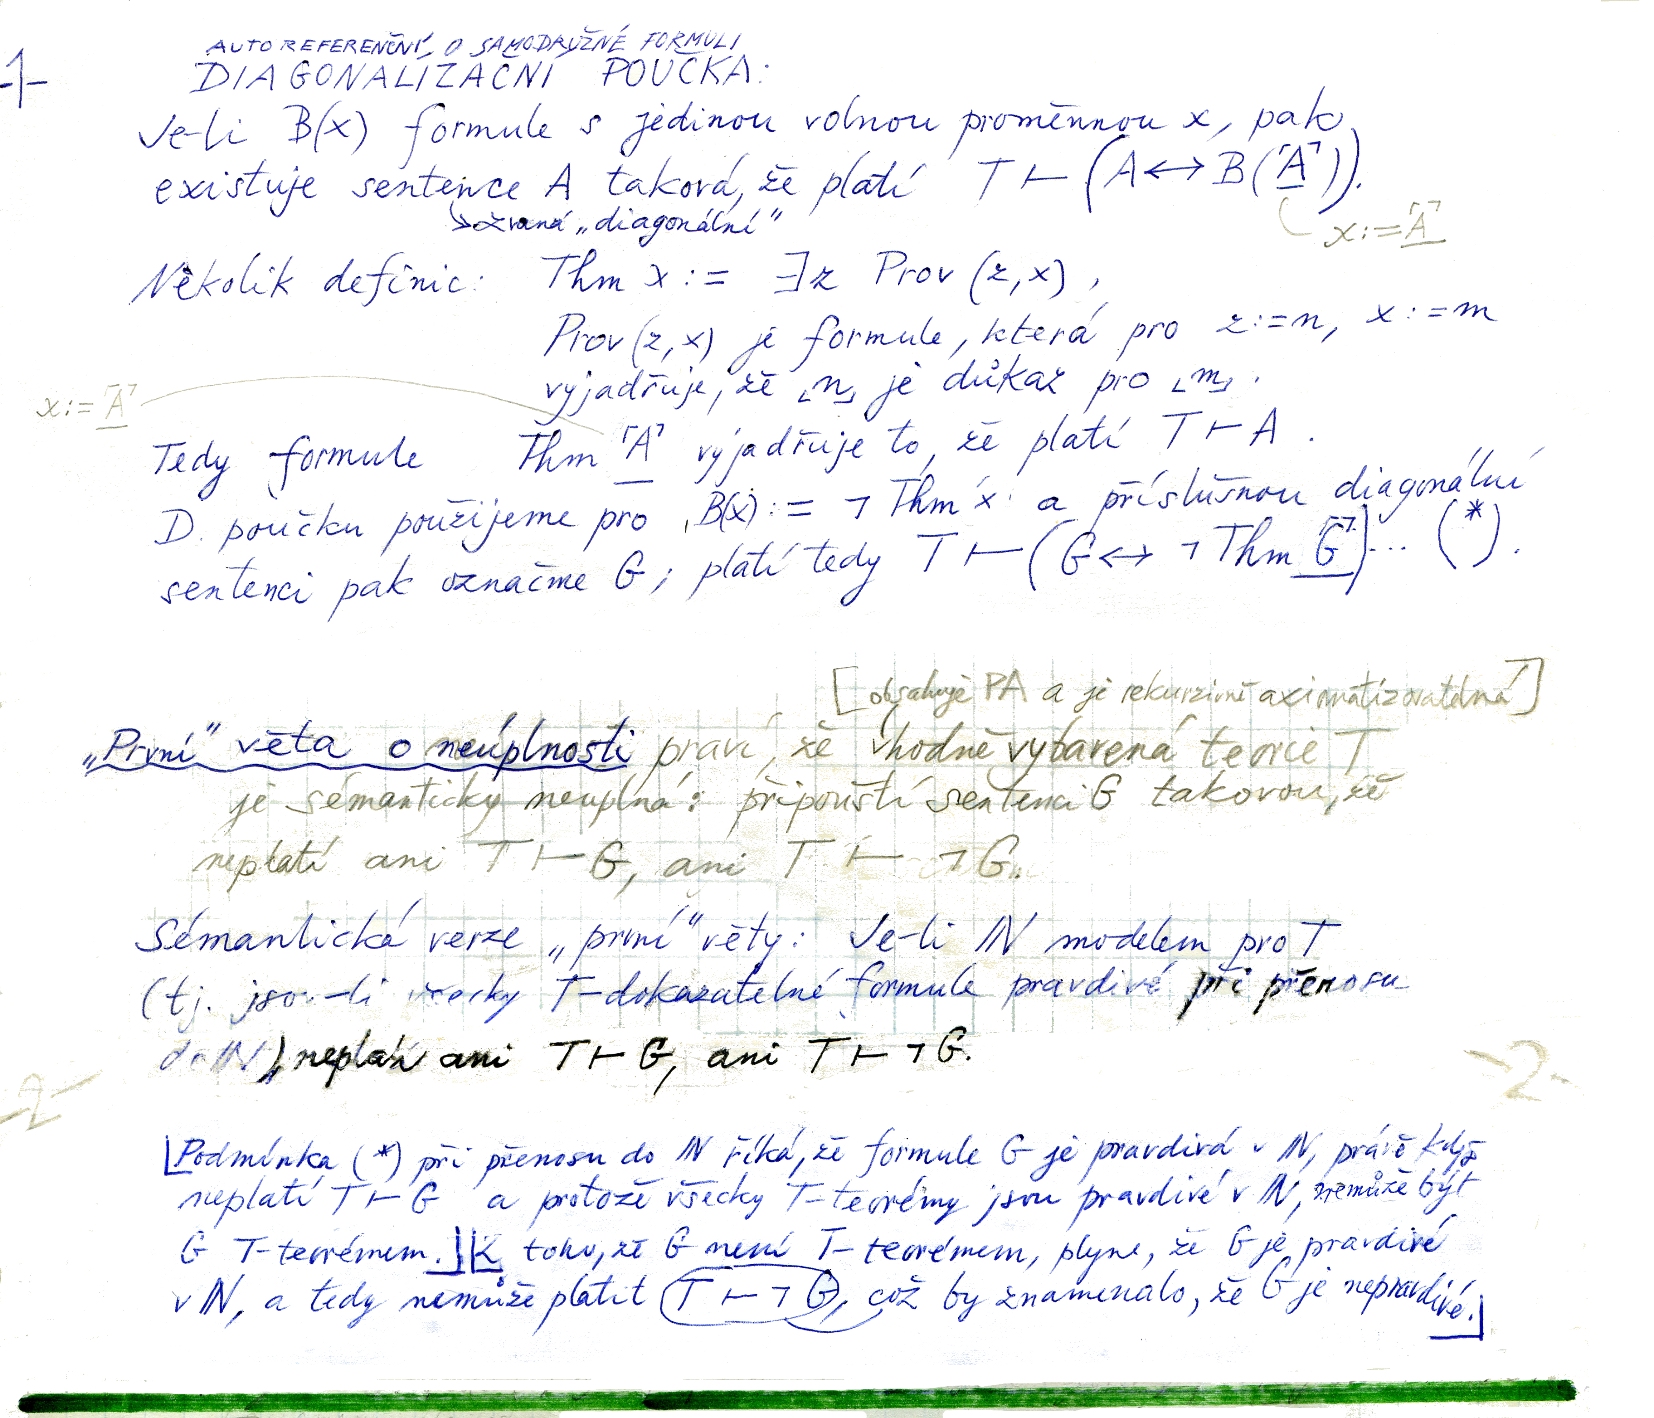 -1-
AUTOREFERENČNÍ, O SAMODRUŽNÉ FORMULI
DIAGONALIZAČNÍ POUČKA:
Je-li B(x) formule s jedinou volnou proměnnou x, pak
existuje sentence A taková, že platí T ⊢ (A ↔ B(⌜A⌝)).
zvaná „diagonální“
x := ⌜A⌝
Několik definic: Thm x := ∃z Prov (z, x),
Prov (z, x) je formule, která pro z := n, x := m
vyjadřuje, že ⌞n⌟ je důkaz pro ⌞m⌟.
x := ⌜A⌝
Tedy formule Thm ⌜A⌝ vyjadřuje to, že platí T ⊢ A.
D. poučku použijeme pro B(x) := ¬ Thm x a příslušnou diagonální
sentenci pak označme G; platí tedy T ⊢ (G ↔ ¬ Thm ⌜G⌝) ... (*).
[obsahuje PA a je rekurzivně axiomatizovatelná]
„První“ věta o neúplnosti praví, že vhodně vybavená teorie T
je sémanticky neúplná: připouští sentenci G takovou, že
neplatí ani T ⊢ G, ani T ⊢ ¬G.
Sémantická verze „první“ věty: Je-li ℕ modelem pro T
(tj. jsou-li všecky T-dokazatelné formule pravdivé při přenosu
do ℕ), neplatí ani T ⊢ G, ani T ⊢ ¬G.
-2-
-2-
⌊Podmínka (*) při přenosu do ℕ říká, že formule G je pravdivá v ℕ, právě když
neplatí T ⊢ G a protože všecky T-teorémy jsou pravdivé v ℕ, nemůže být
G T-teorémem.⌋ ⌊Z toho, že G není T-teorémem, plyne, že G je pravdivé
v ℕ, a tedy nemůže platit T ⊢ ¬G, což by znamenalo, že G je nepravdivé.⌋